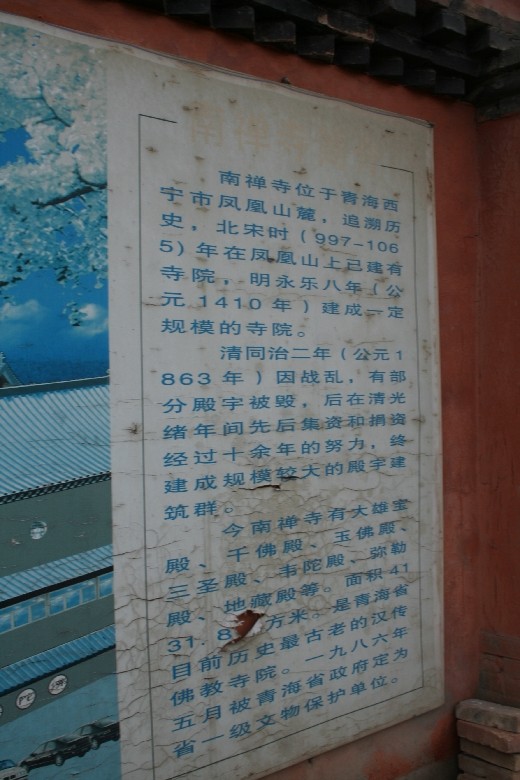 南禅寺位于青海西
宁市凤凰山麓，追溯历
史，北宋时（997-106
5）年在凤凰山上已建有
寺院，明永乐八年（公
元1410年）建成一定
规模的寺院。
清同治二年（公元1
863年）因战乱，有部
分殿宇被毁，后在清光
绪年间先后集资和捐资
经过十余年的努力，终
建成规模较大的殿宇建
筑群。
今南禅寺有大雄宝
殿、千佛殿、玉佛殿、
三圣殿、韦陀殿、弥勒
殿、地藏殿等。面积41
31.8方米。是青海省
目前历史最古老的汉传
佛教寺院。一九八六年
五月被青海省政府定为
省一级文物保护单位。